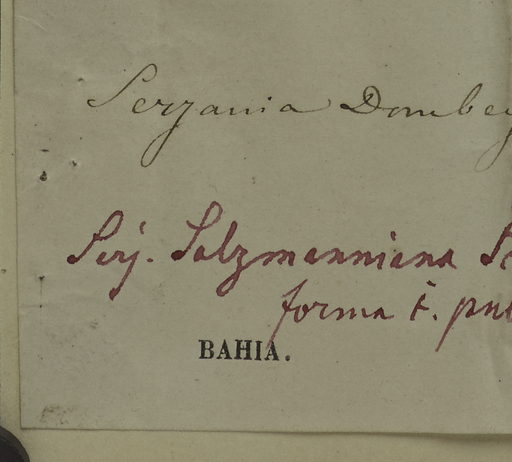 Serzania Dombey
Serj. Salzmanniana
forma
BAHIA.